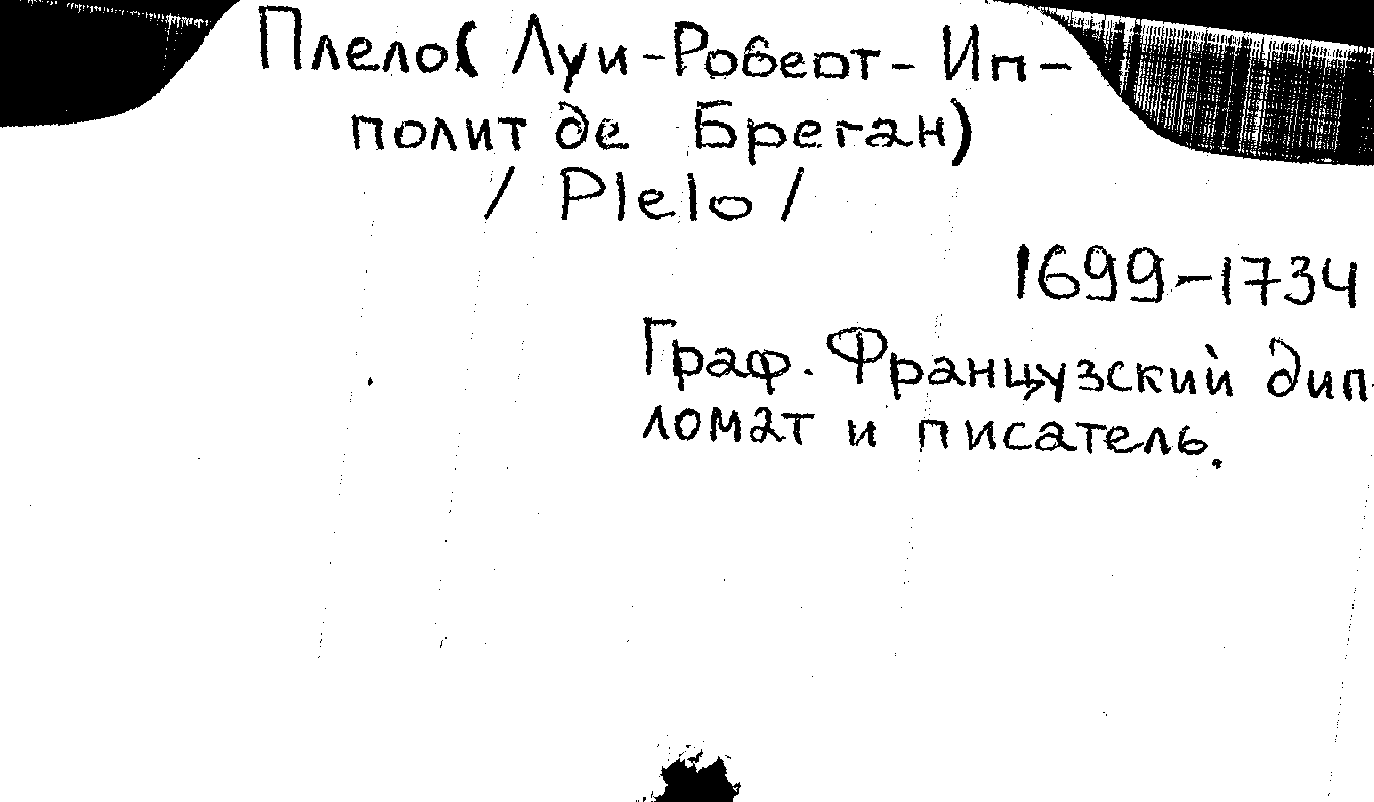 Плело( Луи-Роберт-Ип-
полит де Бреган)
/ Plelo /
1699-1734
Граф. Французский дип-
ломат и писатель.